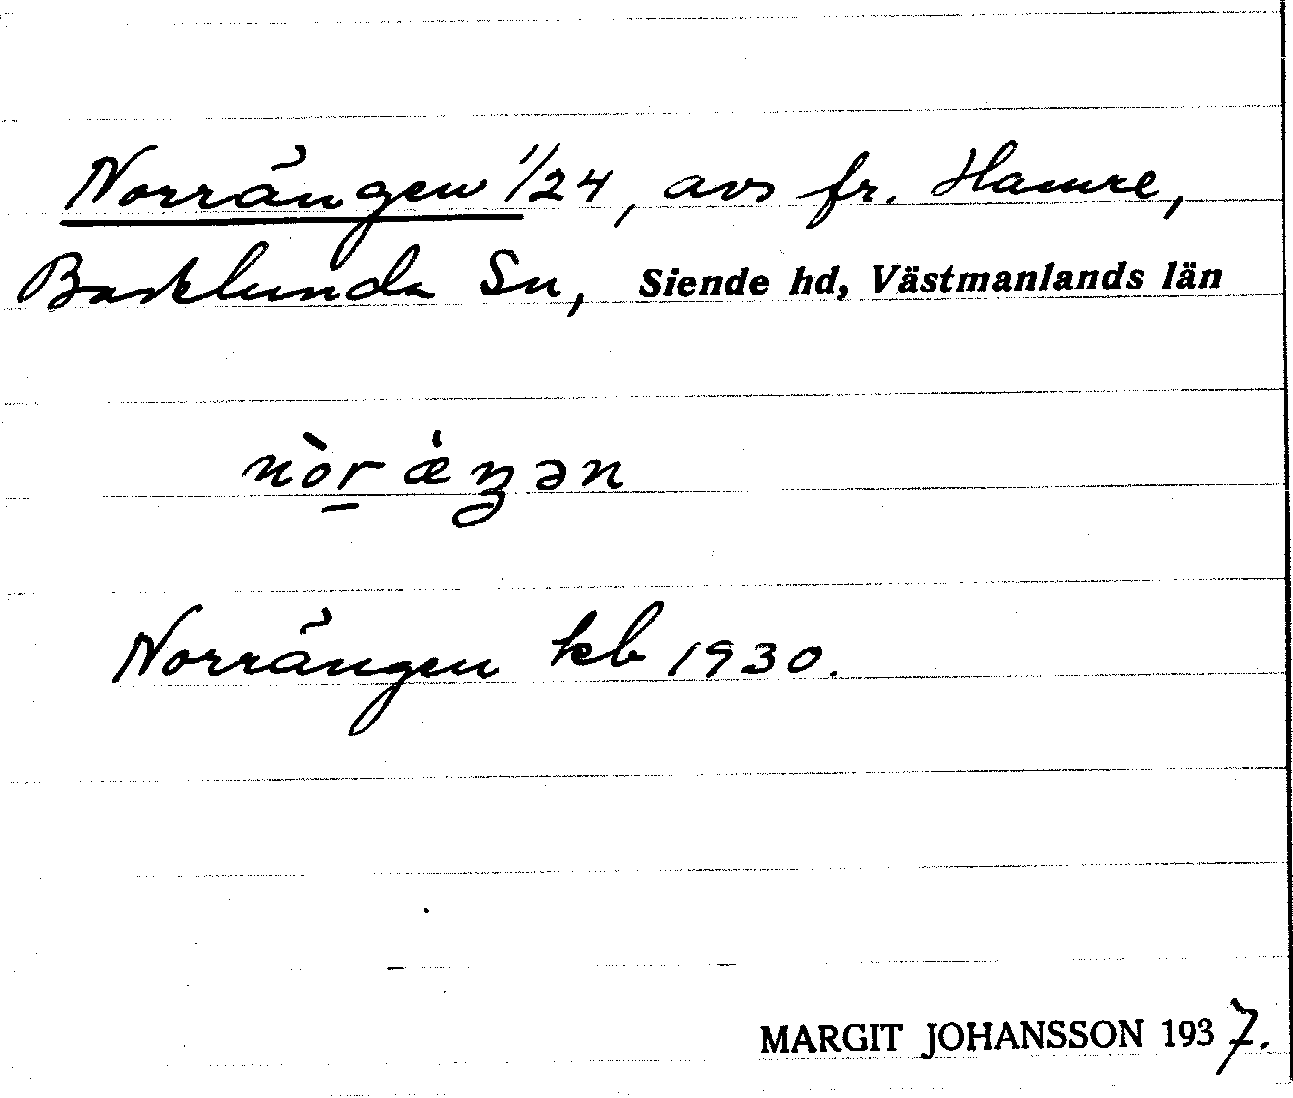 Norrängen 1/24, avs fr. Hamre,
Barklunda Sn, Siende hd, Västmanlands län
nòr æ̀ŋən
Norrängen kb 1930.
MARGIT JOHANSSON 1937.